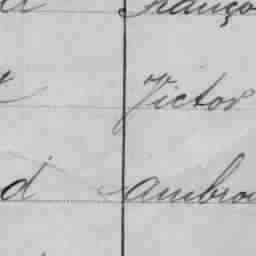 Franço
Victor
d Ambro